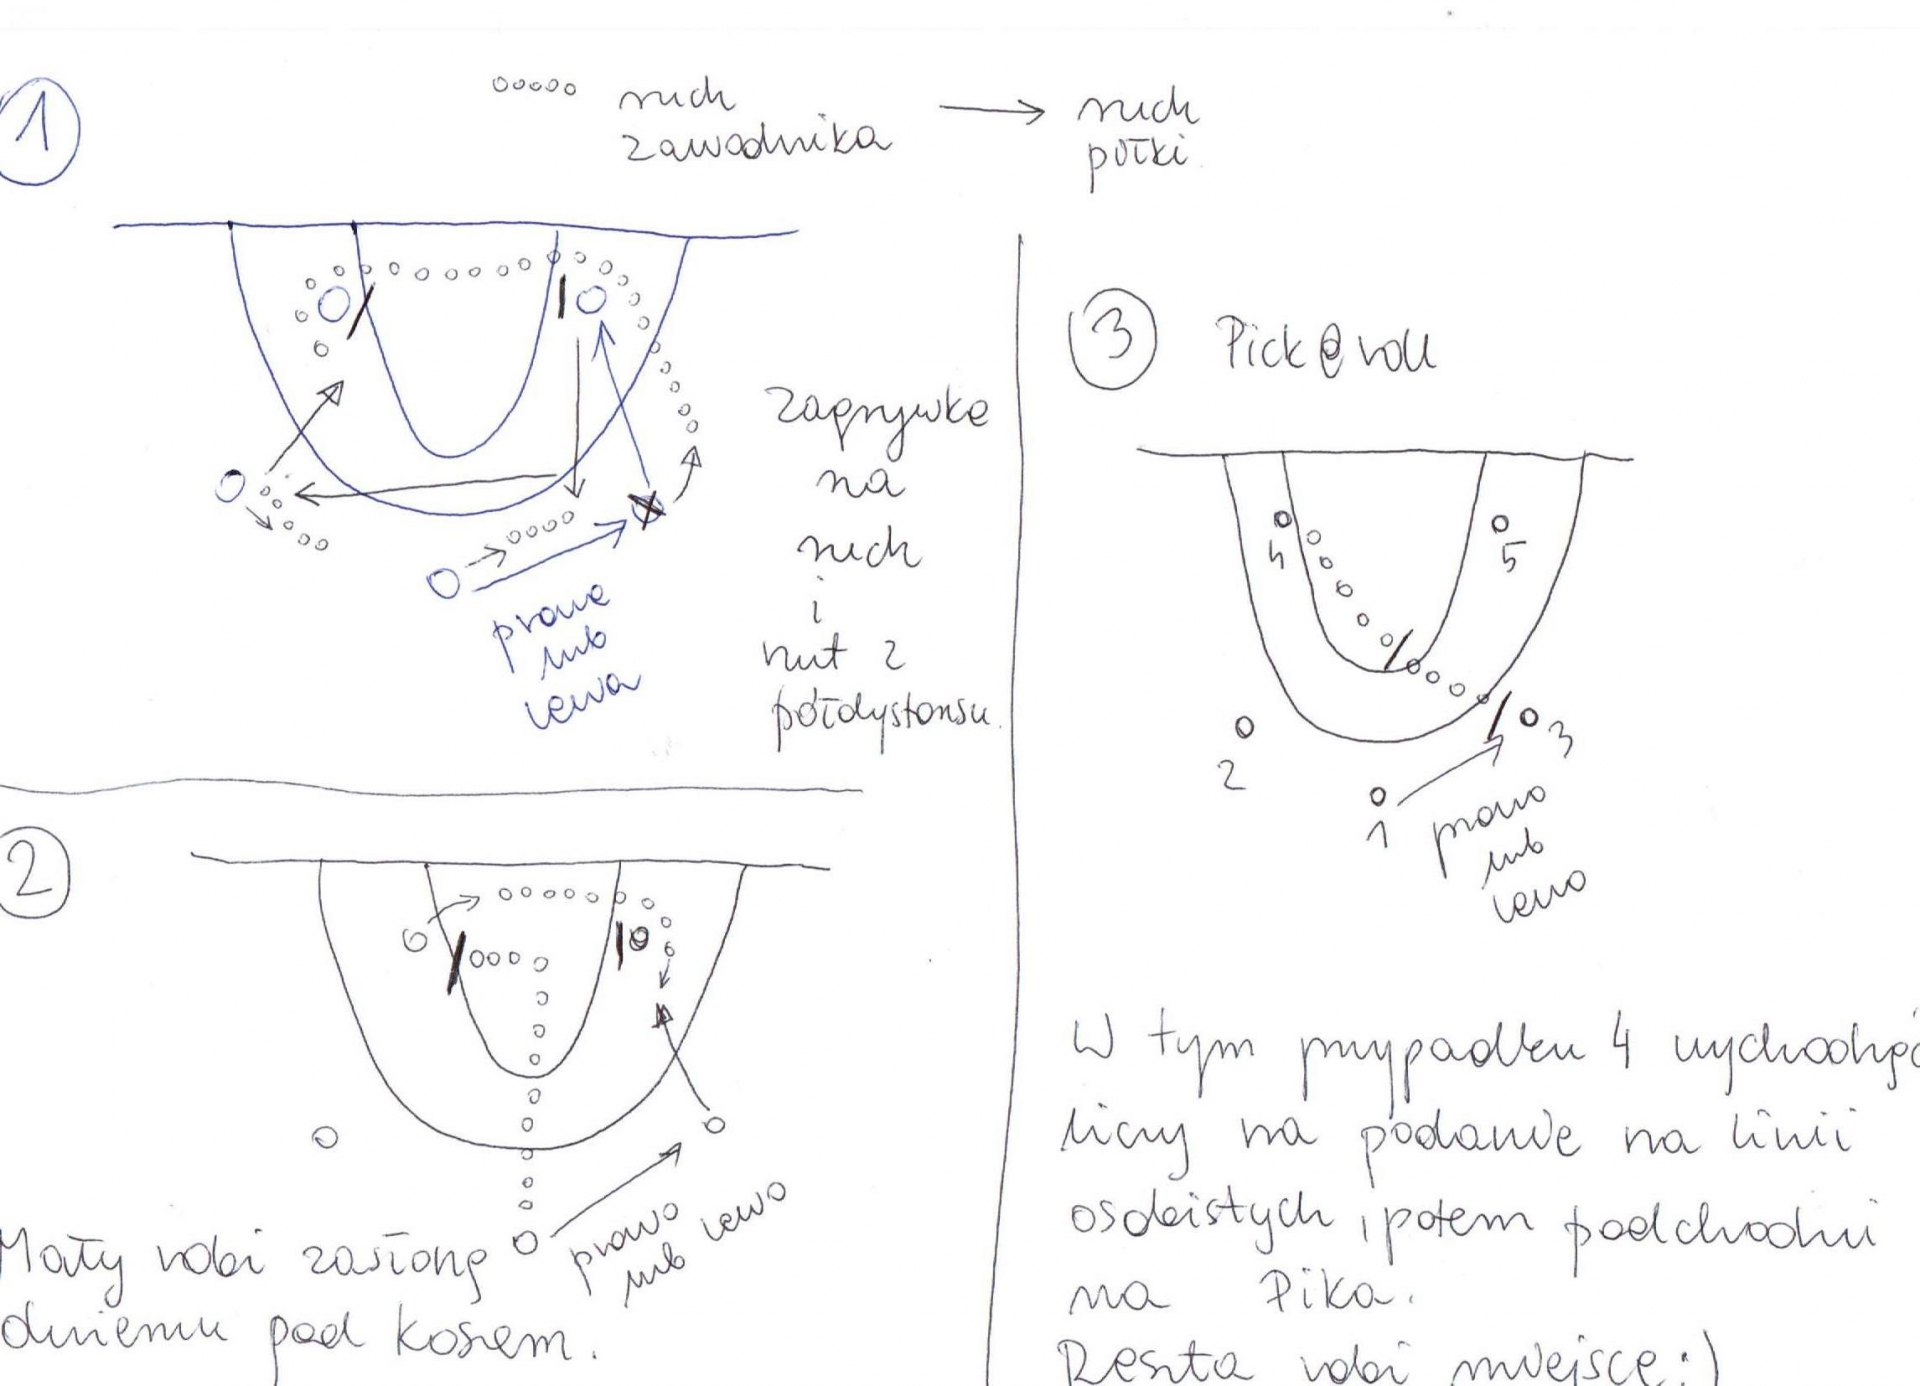 1
ruch
zawodnika
ruch
piłki
zagrywka
na
ruch
i
rzut z
półdystansu.
prawa
lub
lewa
2
prawo
lub lewo
Mały robi zasłonę
dużemu pod koszem.
3 Pick&roll
4
5
2
3
1
prawo
lub
lewo
W tym przypadku 4 wychodząc
liczy na podanie na linii
osobistych, potem podchodzi
na Pika.
Reszta robi miejsce :)